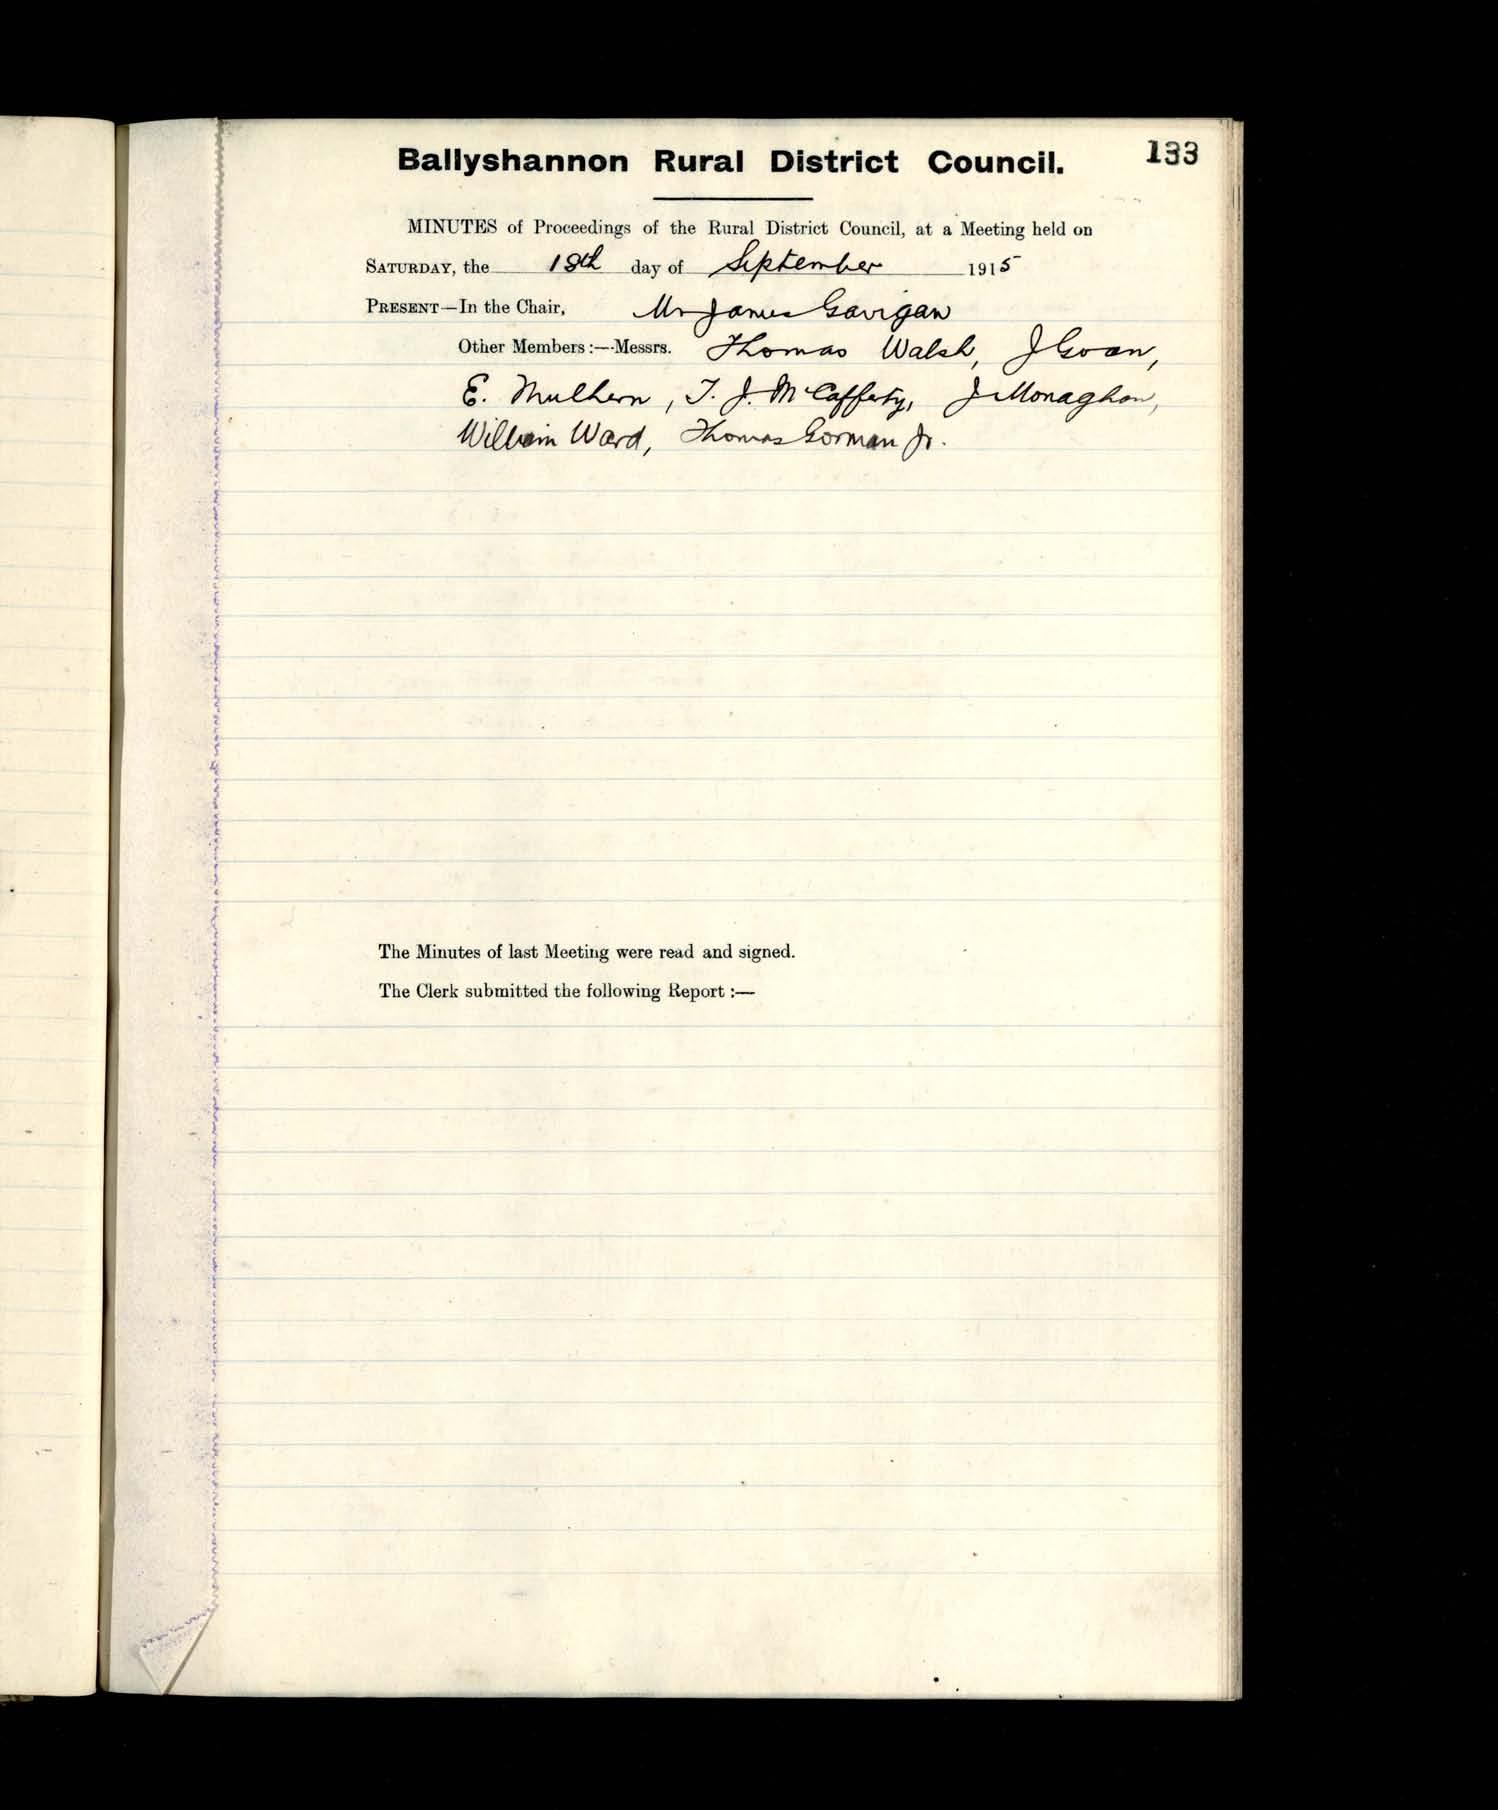 Ballyshannon Rural District Council.
133
MINUTES of Proceedings of the Rural District Council, at a Meeting held on
SATURDAY, the 18th day of September 1915
PRESENT—In the Chair, Mr James Gavigan
Other Members:—Messrs. Thomas Walsh, J Goan,
E. Mulhern, T. J. McCafferty, J Monaghan,
William Ward, Thomas Gorman Jr.
The Minutes of last Meeting were read and signed.
The Clerk submitted the following Report :—